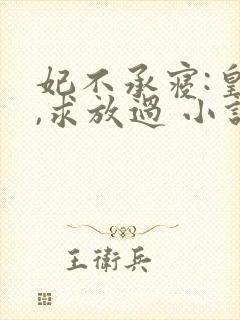 妃不承寵:皇
,求放過 小說
王衛兵